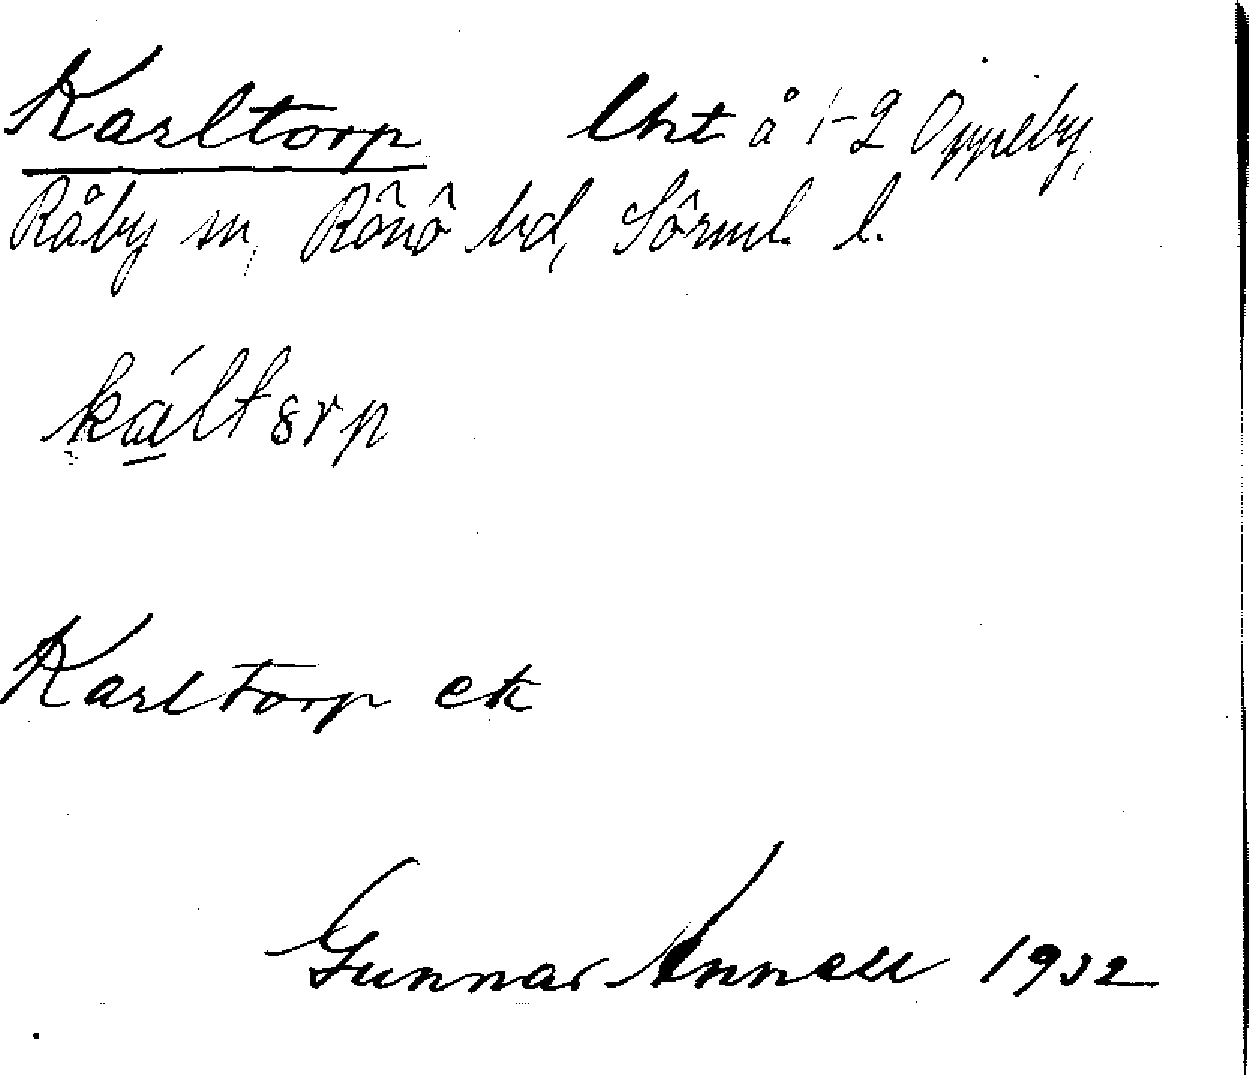 Karltorp lht å 1-2 Oppeby,
Råby sn, Rönö hd, Sörml. l.
káltorp
Karltorp ek
Gunnar Annell 1932